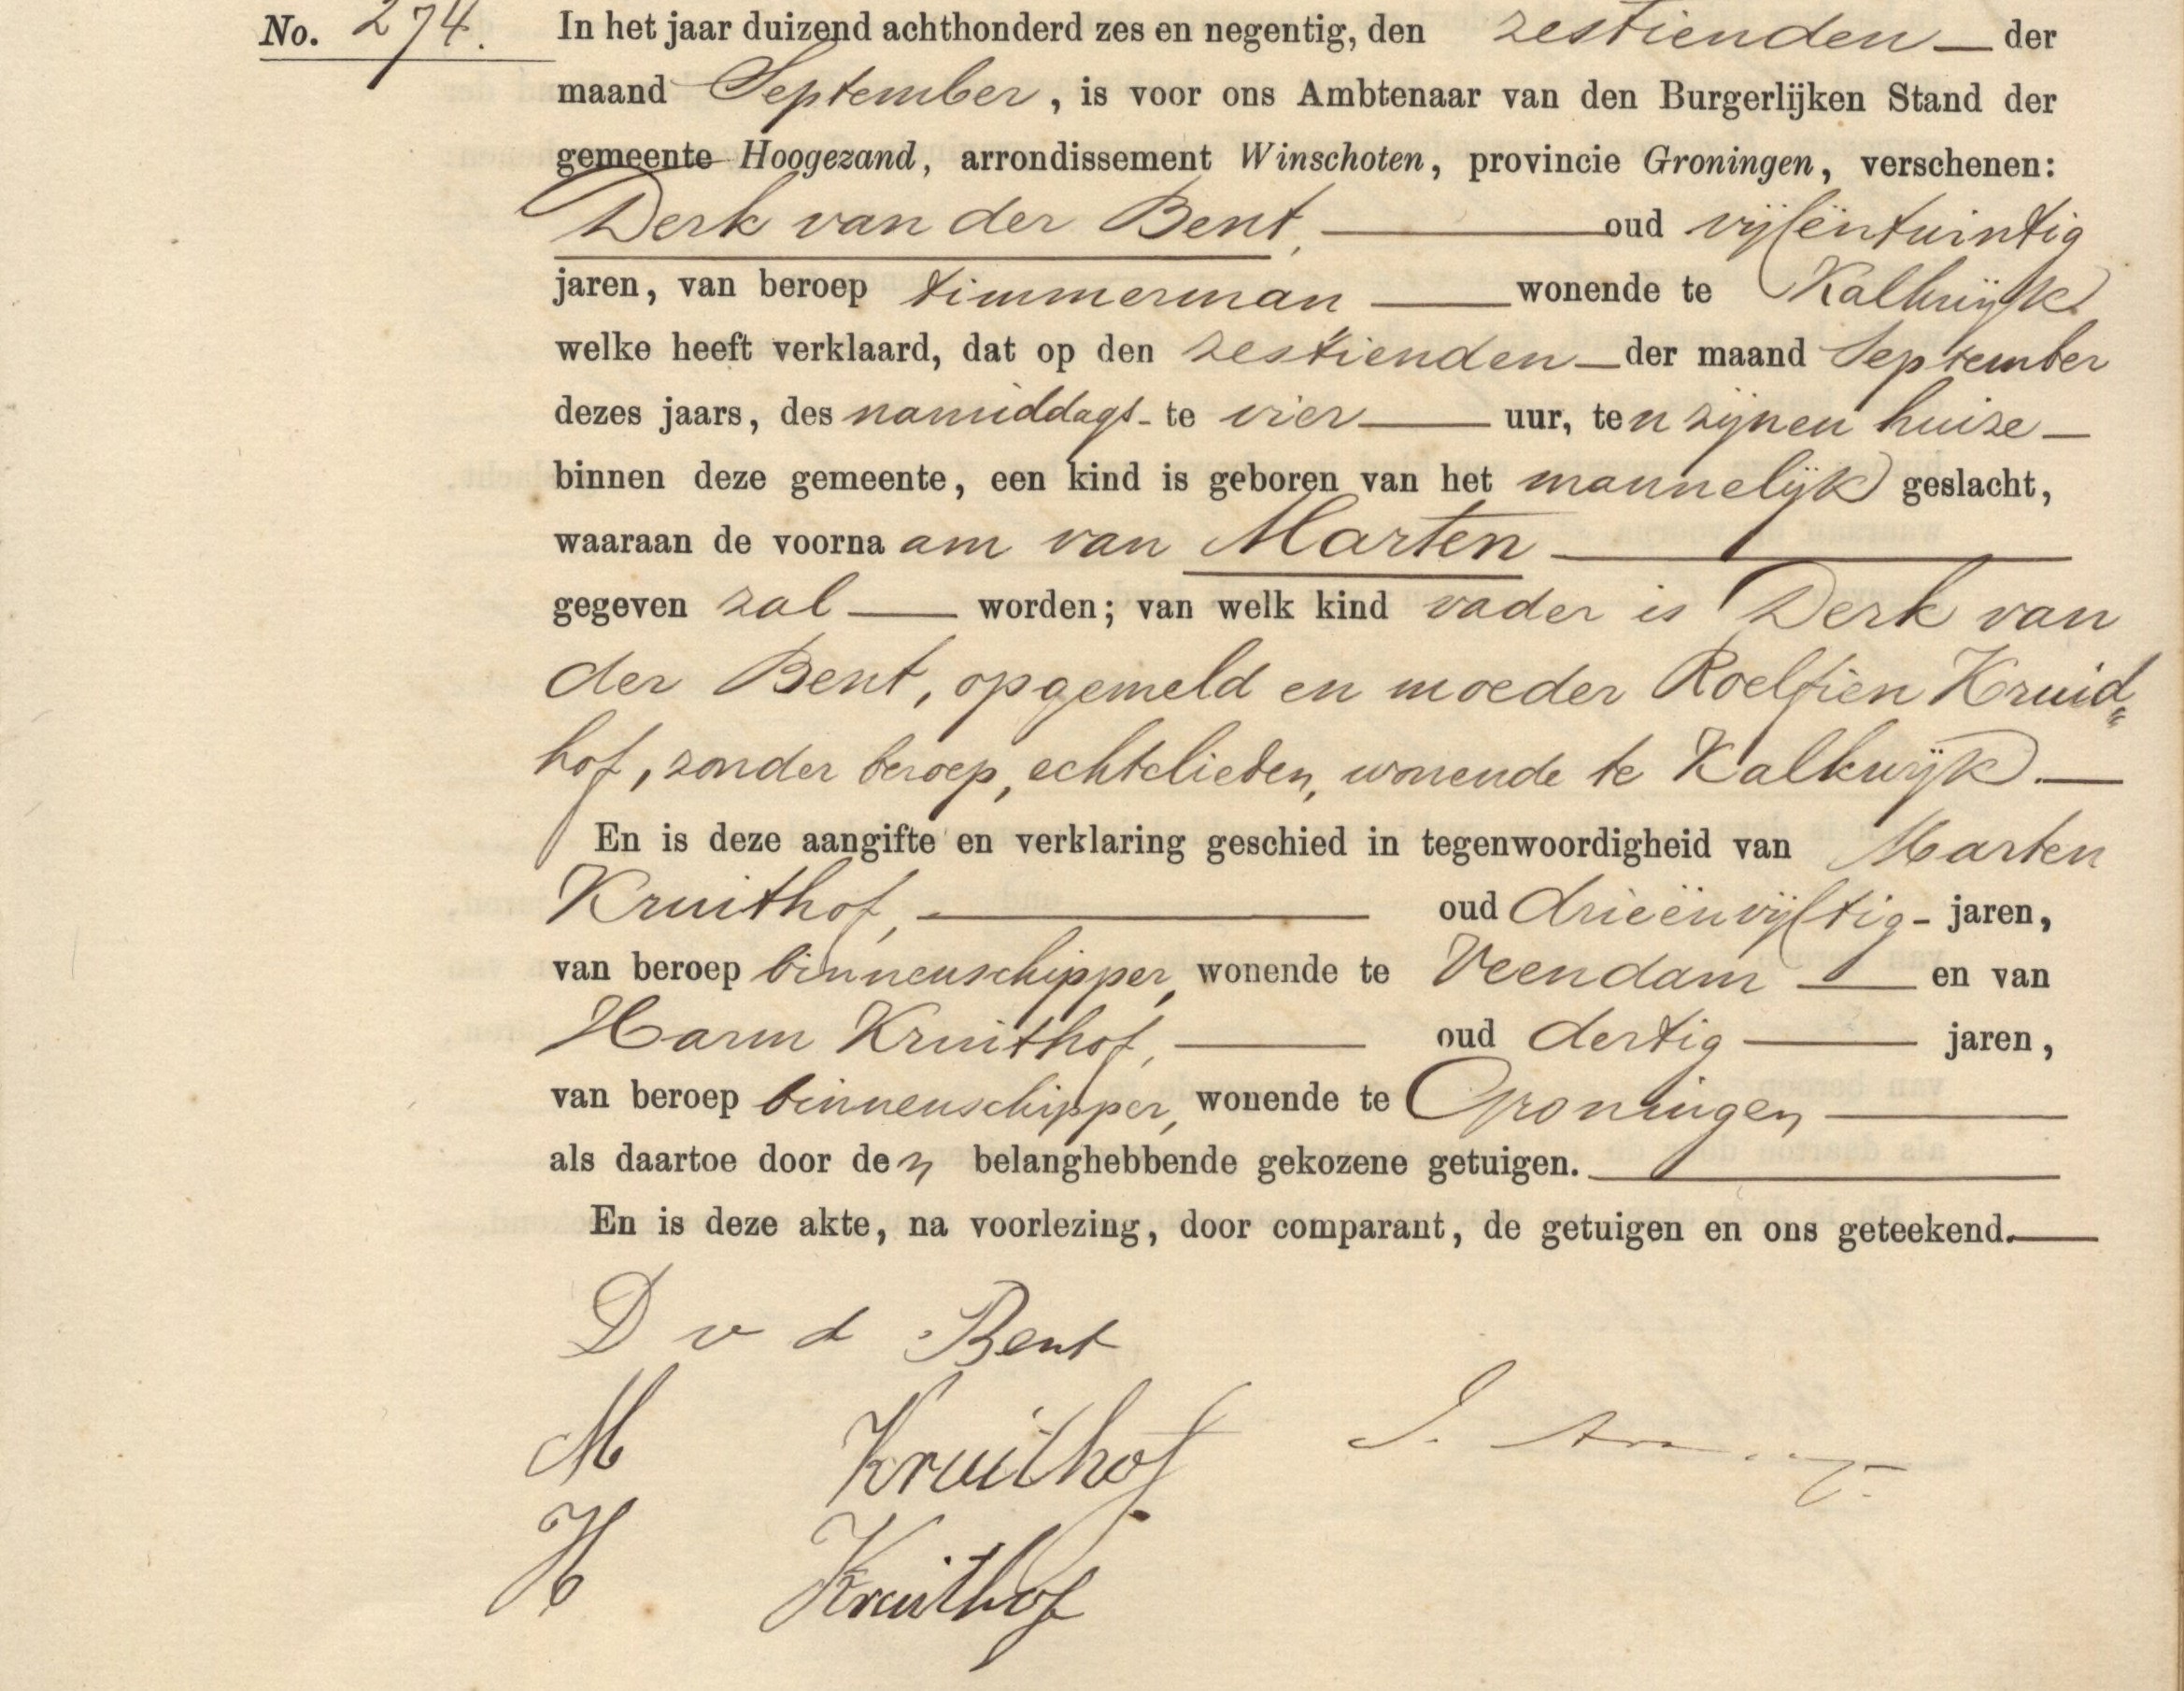 No. 274. In het jaar duizend achthonderd zes en negentig, den zestienden — der
maand September, is voor ons Ambtenaar van den Burgerlijken Stand der
gemeente Hoogezand, arrondissement Winschoten, provincie Groningen, verschenen:
Derk van der Bent, — oud vijfëntwintig
jaren, van beroep timmerman — wonende te Kalkwijk
welke heeft verklaard, dat op den zestienden — der maand September
dezes jaars, des namiddags - te vier — uur, ten zijnen huize —
binnen deze gemeente, een kind is geboren van het mannelijk geslacht,
waaraan de voornaam van Marten —
gegeven zal — worden; van welk kind vader is Derk van
der Bent, opgemeld en moeder Roelfien Kruid„
hof, zonder beroep, echtelieden, wonende te Kalkwijk. —
En is deze aangifte en verklaring geschied in tegenwoordigheid van Marten
Kruithof, — oud drieënvijftig - jaren,
van beroep binnenschipper, wonende te Veendam — en van
Harm Kruithof, — oud dertig — jaren,
van beroep binnenschipper, wonende te Groningen —
als daartoe door den belanghebbende gekozene getuigen. —
En is deze akte, na voorlezing, door comparant, de getuigen en ons geteekend. —
D v d Bent
M Kruithof
H Kruithof